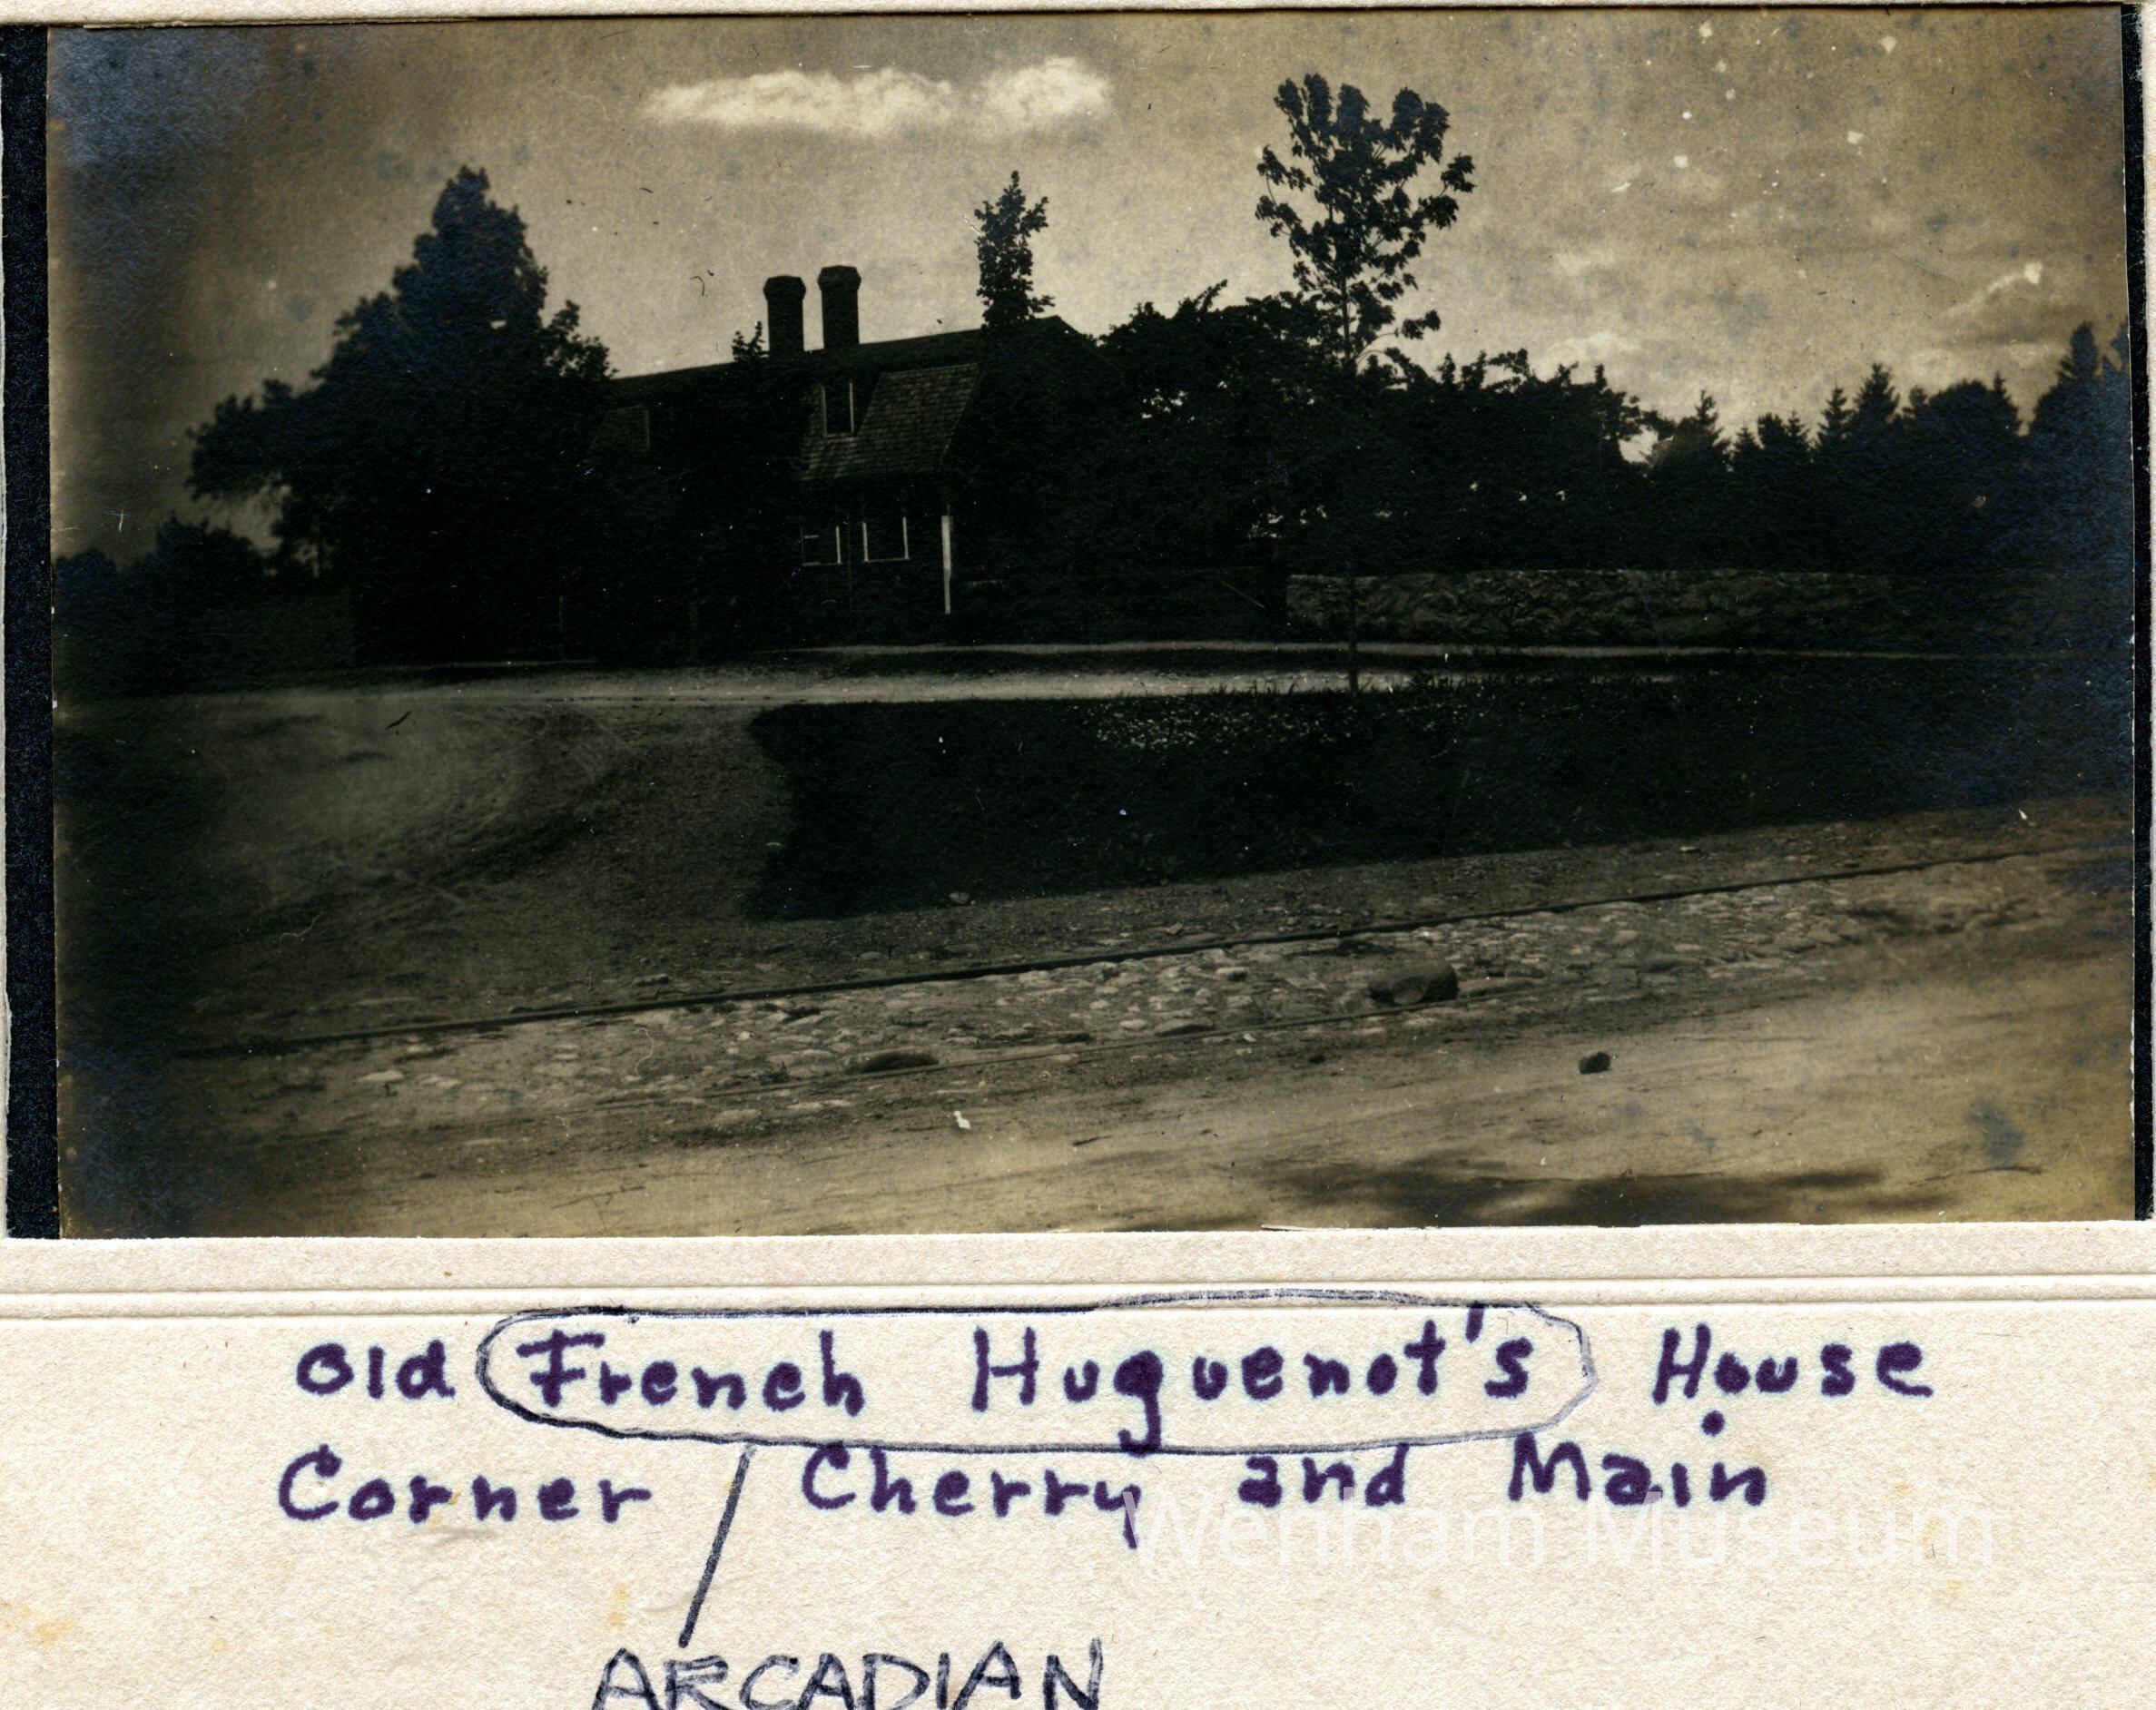 Old French Huguenot's House
Corner Cherry and Main
Wenham Museum
ARCADIAN